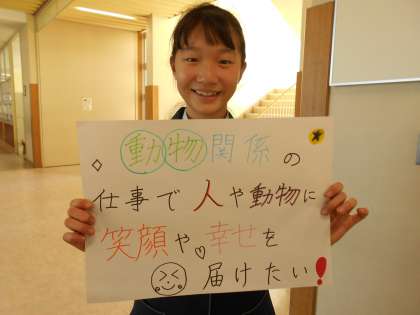 動物関係の
仕事で人や動物に
笑顔や♡幸せを
届けたい!